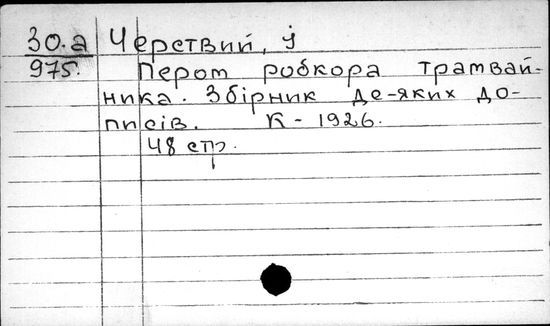 30.а Черствий, Й
975. Пером робкора трамвай-
ника. Збірник де-яких до-
писів. К - 1926.
48 стр.